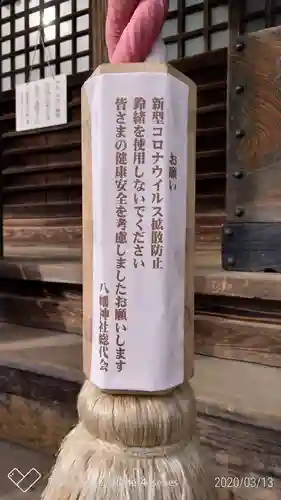 お願い
新型コロナウィルス拡散防止
鈴緒を使用しないでください
皆さまの健康安全を考慮しましたお願いします
八幡神社総代会
2020/03/13